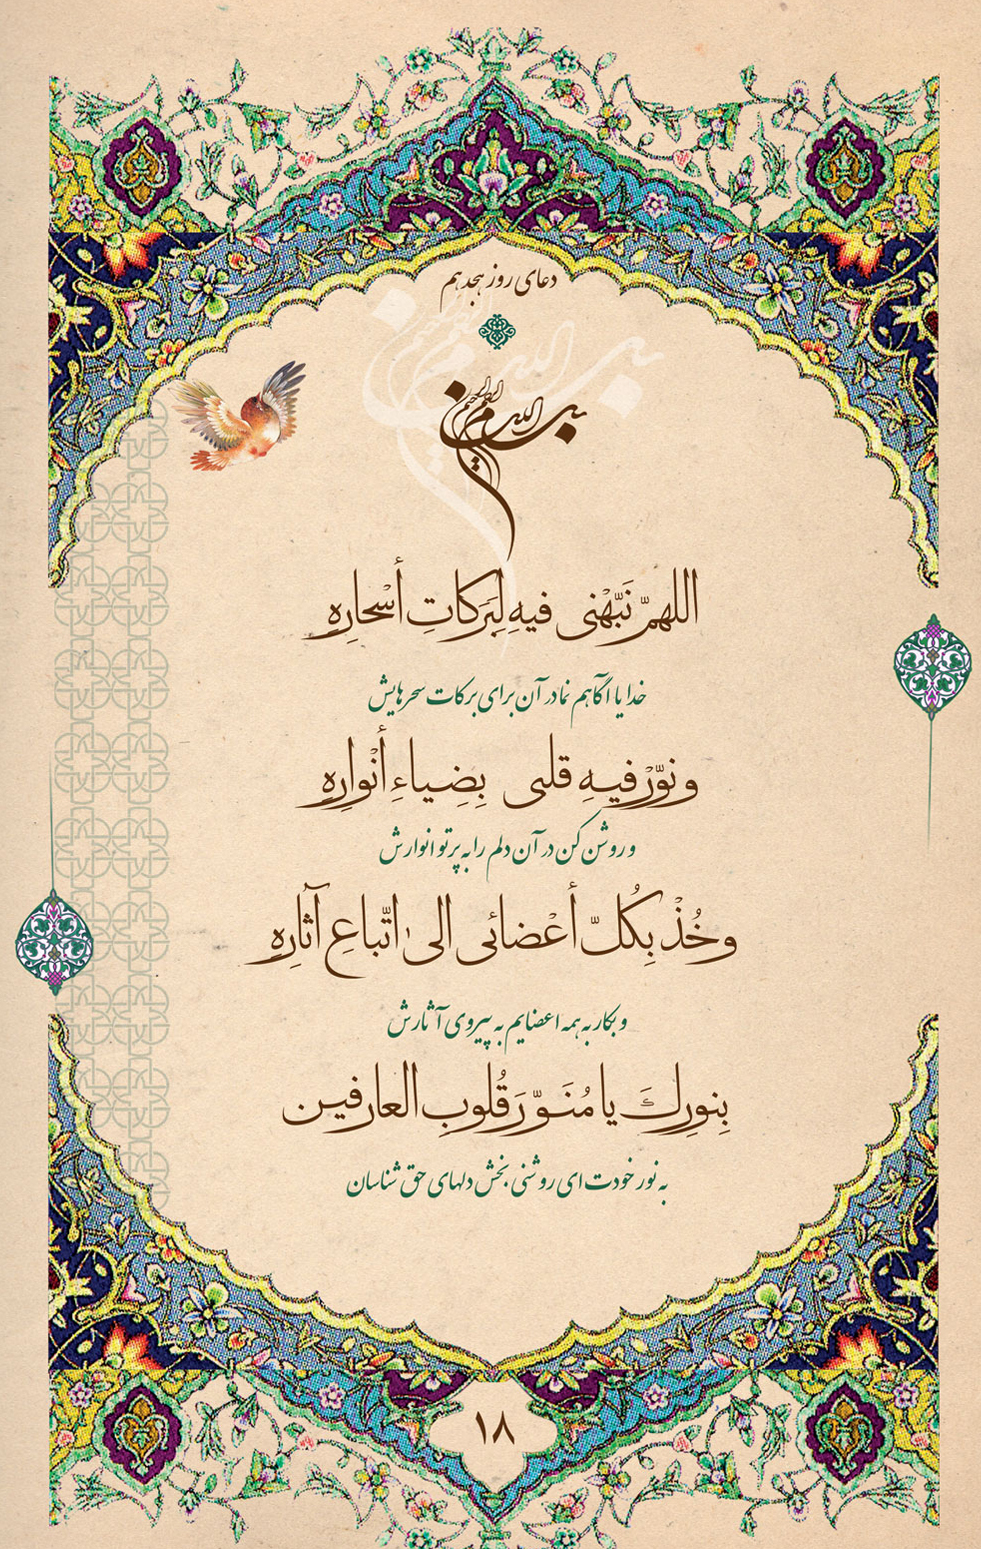 دعای روز هجدهم
بسم الله الرحمن الرحیم
اللهمّ نَبّهْنی فیهِ لِبَرَکاتِ أسْحارِهِ
خدایا آگاهم نما در آن برای برکات سحرهایش
ونوّرْ فیهِ قلبی بِضِیاءِ أنْوارِهِ
و روشن کن در آن دلم را به پرتو انوارش
وخُذْ بِکُلّ أعْضائی الیٰ اتّباعِ آثارِهِ
و بکار به همه اعضایم به پیروی آثارش
بِنورِكَ یا مُنَوّرَ قُلوبِ العارفین
به نور خودت ای روشنی بخش دلهای حق شناسان
۱۸